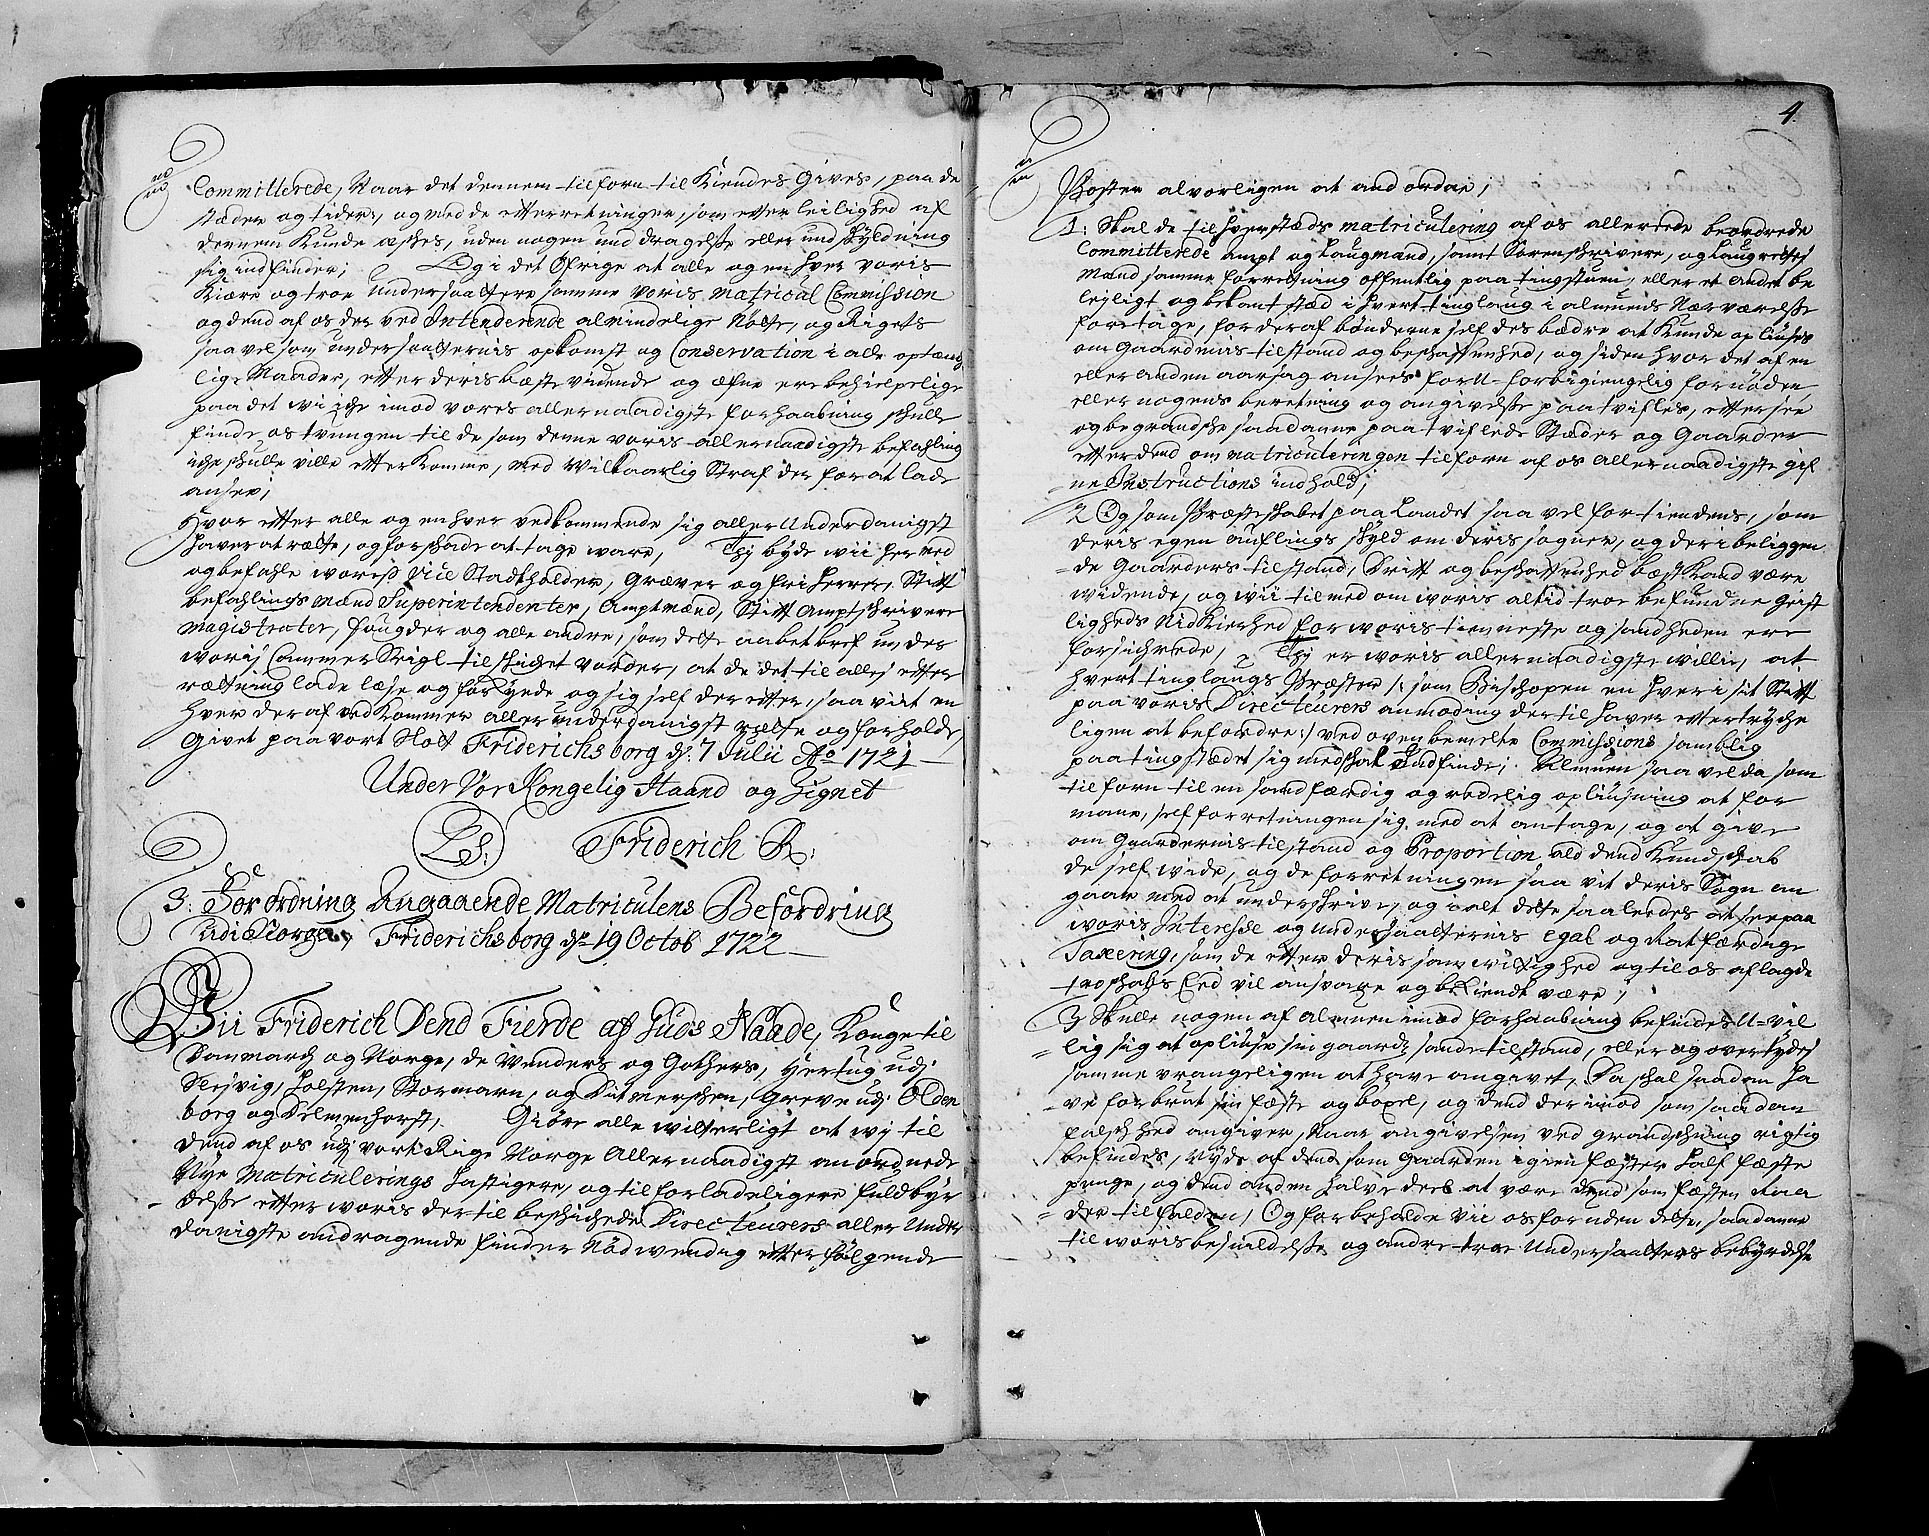 Committerede, Naar det dennem tilforn til Kiendes Gives, paa de
stæder og tider, og med de efterretninger, som efter leilighed af
dennem Kunde æsches, uden nogen unddragelse eller undskyldning
sig indfinder; Og i det Øfrige at alle og en hver voris
Kiære og troe Undersaattere samme voris Matricul Commission
og dend af os der ved Intenderende almindelige Nøtte, og Rigets
saa vel som undersaatternis opkomst og Conservation i alle optænk
lige Maader, efter deris bæste vidende og æfne ere behielpelige
paa det wi iche imod vores allernaadigste forhaabning skulle
finde os tvungen til de som denne voris allernaadigste befahling
iche skulle ville efterkomme, med wilkaarlig Straf der for at lade
ansee;
Hvor efter alle og enhver vedkommende sig aller Underdanigst
haver at rætte, og for skade at tage ware, Thj byde wii her med
og befahle woris Vice Stadtholder, Græver og fri Herrer, Stift
befahlings Mænd Superintendenter, Amptmænd, Stift Amptschrivere
Magistrater, fougder og alle andre, som dette aabet bref under
woris Cammer Seigl tilskichet vorder, at de det til alles efter
rætning lade læse og forkynde og sig self der efter, saa vit en
hver der af ved Kommer aller underdanigst rætte og forholde,
Givet paa vort Slott Friderichsborg d: 7 Julii Ao 1721
Under Vor Kongelig Haand og Zignet
LS: Friderich R:
3: Forordning Angaaende Matriculens Befordring
udi Norge, Friderichsborg d: 19 Octob 1722
Wii Friderich Dend Fierde af Guds Naade, Konge til
Danmarch og Norge, de Wenders og Gothers, Hertug udj
Slesvig, Holsten, Stormarn, og Ditmerschen, Greve udj Olden
borg og Delmenhorst, Giøre alle witterligt at wj til
dend af os udj vort Rige Norge Allernaadigst anordnede
Nye Matriculerings hastigere, og tilforladeligere fuldbyr
delse efter woris der til beschichede Directeurers aller Under
danigste andragende finder Nødwendig efterfølgende
4.
Poster alvorligen at and ordne;
1: Skal de til hverstæds matriculering af os allerede beordrede
Committerede Ampt og Laugmænd, samt Sorenschrivere, og Laugrettes
Mænd samme forretning offentlig paa tingstuen, eller et andet be
lejligt og bekant stæd i hvert tinglaug i almuens Nærværelse
foretage, for der af bønderne self des bædre at Kunde oplyses
om Gaardenis tilstand og beschaffenhed, og siden hvor det af en
eller anden aarsag ansees for U-forbigiengelig fornøden,
eller nogens beretning og angivelse paatvifles, eftersee
og begrandsche saadanne paatviflede Stæder og Gaarder
efter dend om matriculeringen tilforn af os Allernaadigste gif
ne Instructions indhold;
2 Og som Præsteskabet paa Landet saa vel for tiendens, som
deris egen auflings skyld om deris sogner, og der i beliggen
de Gaarders tilstand, Drift og beschaffenhed bæst Kand være
widende, og wii til med om woris altid troe befundne Geist
ligheds Nidkierhed for woris tienneste og sandheden ere
forsichrede, Thj er woris allernaadigste willie, at
hvert tinglaugs Præster /: som Bischopen en hver i sit Stift
paa voris Directeurers anmoding der til haver eftertryche
ligen at befordre :/ ved ovenbemelte Commissions samling
paa tingstædet sig med skal Indfinde; Almuen saa vel da som
tilforn til en sandfærdig og redelig oplysning at for
mane, self forretningen sig med at antage, og at give
om Gaardernis tilstand og Proportion ald dend Kundskab
de self wide, og de forretningen saa vit deris Sogn an
gaar med at underskrive, og i alt dette saaledes at see paa
woris Interesse og undersaatternis egal og Ratfærdige
Taxering, som de efter deris samvittighed og til os aflagde
troskabs Eed vil ansvare og bekiendt være;
3 Skulle nogen af almuen imod forhaabning befindes U-vil
lig sig at oplise sin gaards sande tilstand, eller og overtydes
samme vrangeligen at have angivet, Da skal saadan ha
ve forbrut sin fæste og boxel, og dend der imod som saadan
falschhed angiver, Naar angivelsen ved grandschning rigtig
befindes, Nyde af dend som Gaarden igien fæster half fæste
penge, og dend anden halve deel at være dend som fæsten Raa
der tilfalden, Og forbeholde vii os foruden dette, saadanne
til woris besvildelse og andre troe Undersaatters bebyrdelse